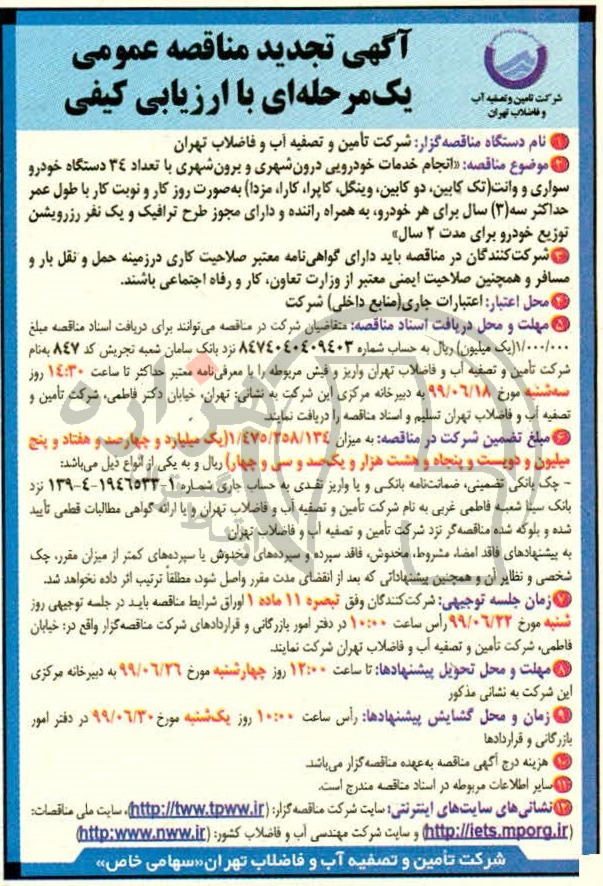 آگهی تجدید مناقصه عمومی
یک‌مرحله‌ای با ارزیابی کیفی
شرکت تأمین و تصفیه آب
و فاضلاب تهران
۱ نام دستگاه مناقصه‌گزار: شرکت تأمین و تصفیه آب و فاضلاب تهران
۲ موضوع مناقصه: «انجام خدمات خودرویی درون‌شهری و برون‌شهری با تعداد ۳۴ دستگاه خودرو
سواری و وانت(تک کابین، دو کابین، وینگل، کاپرا، کارا، مزدا) به‌صورت روز کار و نوبت کار با طول عمر
حداکثر سه(۳) سال برای هر خودرو، به همراه راننده و دارای مجوز طرح ترافیک و یک نفر رزرویشن
توزیع خودرو برای مدت ۲ سال»
۳ شرکت‌کنندگان در مناقصه باید دارای گواهی‌نامه معتبر صلاحیت کاری درزمینه حمل و نقل بار و
مسافر و همچنین صلاحیت ایمنی معتبر از وزارت تعاون، کار و رفاه اجتماعی باشند.
۴ محل اعتبار: اعتبارات جاری(منابع داخلی) شرکت
۵ مهلت و محل دریافت اسناد مناقصه: متقاضیان شرکت در مناقصه می‌توانند برای دریافت اسناد مناقصه مبلغ
۱/۰۰۰/۰۰۰(یک میلیون) ریال به حساب شماره ۸۴۷۴۰۴۰۴۰۹۴۰۳ نزد بانک سامان شعبه تجریش کد ۸۴۷ به‌نام
شرکت تأمین و تصفیه آب و فاضلاب تهران واریز و فیش مربوطه را با معرفی‌نامه معتبر حداکثر تا ساعت ۱۴:۳۰ روز
سه‌شنبه مورخ ۹۹/۰۶/۱۸ به دبیرخانه مرکزی این شرکت به نشانی: تهران، خیابان دکتر فاطمی، شرکت تأمین و
تصفیه آب و فاضلاب تهران تسلیم و اسناد مناقصه را دریافت نمایند.
۶ مبلغ تضمین شرکت در مناقصه: به میزان ۱/۴۷۵/۲۵۸/۱۳۴(یک میلیارد و چهارصد و هفتاد و پنج
میلیون و دویست و پنجاه و هشت هزار و یک‌صد و سی و چهار) ریال و به یکی از انواع ذیل می‌باشد:
- چک بانکی تضمینی، ضمانت‌نامه بانکی و یا واریز نقدی به حساب جاری شماره ۱-۱۹۴۶۵۳۳-۴-۱۳۹ نزد
بانک سینا شعبه فاطمی غربی به نام شرکت تأمین و تصفیه آب و فاضلاب تهران و یا ارائه گواهی مطالبات قطعی تأیید
شده و بلوکه شده مناقصه‌گر نزد شرکت تأمین و تصفیه آب و فاضلاب تهران
به پیشنهادهای فاقد امضا، مشروط، مخدوش، فاقد سپرده و سپرده‌های مخدوش یا سپرده‌های کمتر از میزان مقرر، چک
شخصی و نظایر آن و همچنین پیشنهاداتی که بعد از انقضای مدت مقرر واصل شود، مطلقاً ترتیب اثر داده نخواهد شد.
۷ زمان جلسه توجیهی: شرکت‌کنندگان وفق تبصره ۱۱ ماده ۱ اوراق شرایط مناقصه باید در جلسه توجیهی روز
شنبه مورخ ۹۹/۰۶/۲۲ رأس ساعت ۱۰:۰۰ در دفتر امور بازرگانی و قراردادهای شرکت مناقصه‌گزار واقع در: خیابان
فاطمی، شرکت تأمین و تصفیه آب و فاضلاب تهران شرکت نمایند.
۸ مهلت و محل تحویل پیشنهادها: تا ساعت ۱۲:۰۰ روز چهارشنبه مورخ ۹۹/۰۶/۲۶ به دبیرخانه مرکزی
این شرکت به نشانی مذکور
۹ زمان و محل گشایش پیشنهادها: رأس ساعت ۱۰:۰۰ روز یک‌شنبه مورخ ۹۹/۰۶/۳۰ در دفتر امور
بازرگانی و قراردادها
۱۰ هزینه درج آگهی مناقصه به‌عهده مناقصه‌گزار می‌باشد.
۱۱ سایر اطلاعات مربوطه در اسناد مناقصه مندرج است.
۱۲ نشانی‌های سایت‌های اینترنتی: سایت شرکت مناقصه‌گزار: (http://tww.tpww.ir)، سایت ملی مناقصات:
(http://iets.mporg.ir) و سایت شرکت مهندسی آب و فاضلاب کشور: (http:www.nww.ir)
شرکت تأمین و تصفیه آب و فاضلاب تهران«سهامی خاص»